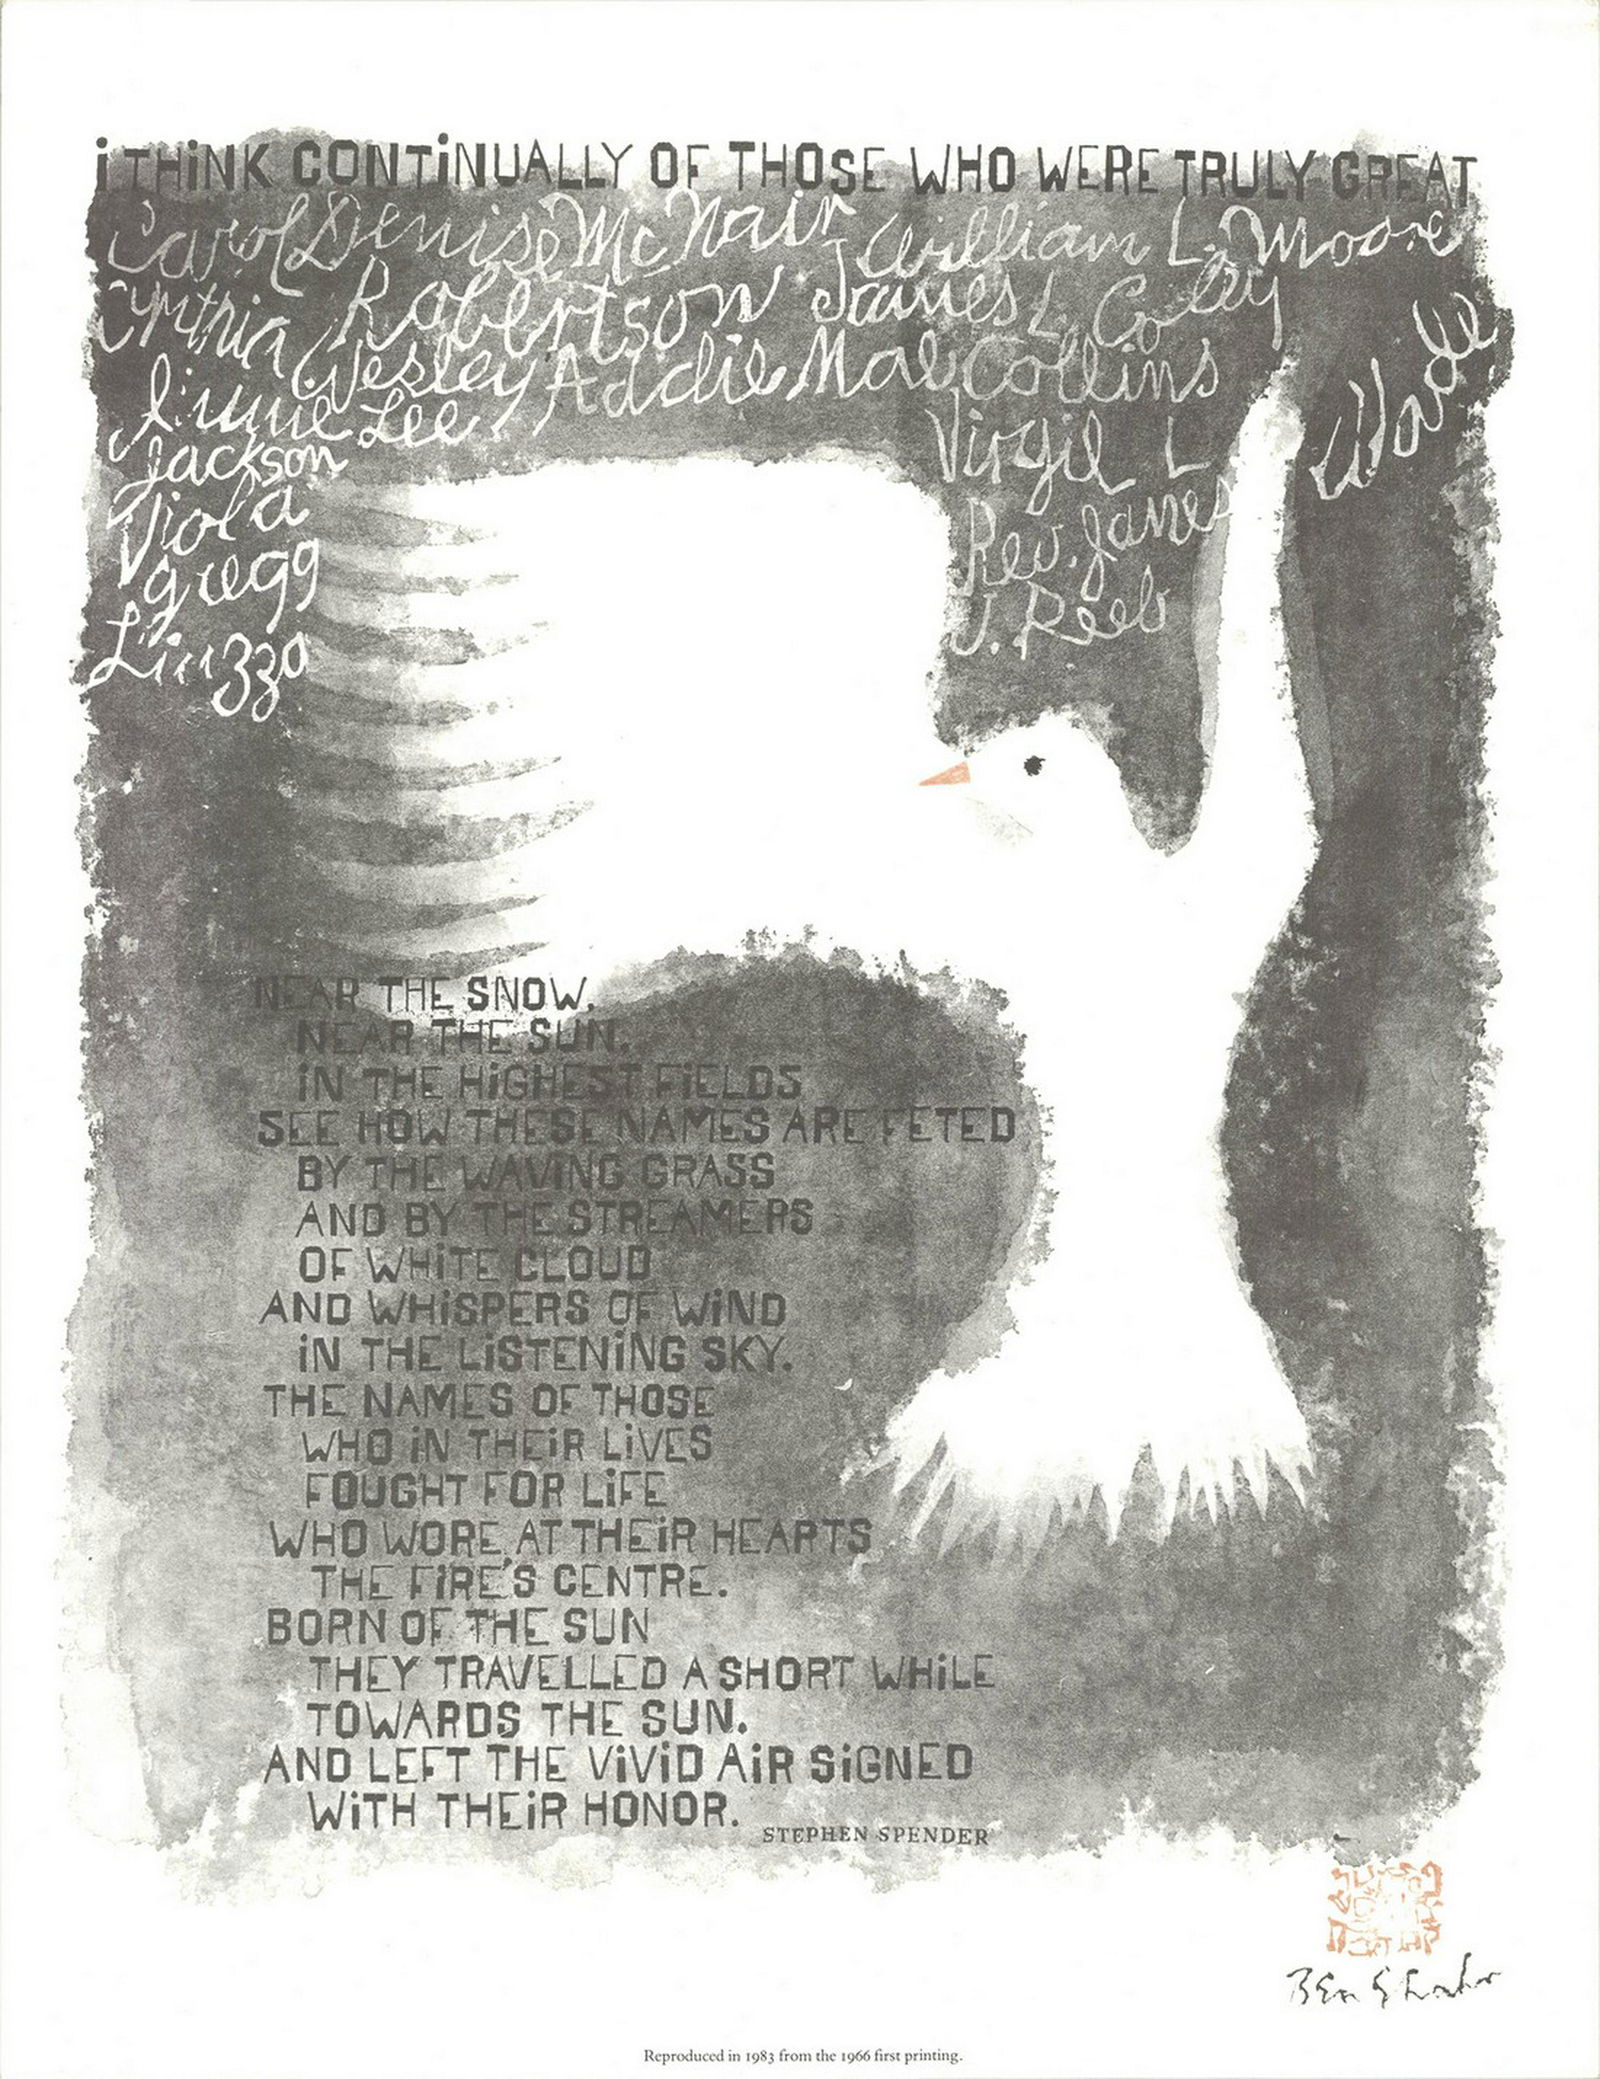 i THiNK CONTiNUALLY OF THOSE WHO WERE TRULY GREAT
Carol Denise McNair William L. Moore
Cynthia Robertson James L. Coley
Wesley Addie Mae Collins
Jimmie Lee
Jackson
Virgil L Ware
Viola
gregg
Liuzzo
Rev. James
J. Reeb
NEAR THE SNOW,
NEAR THE SUN,
iN THE HiGHEST FiELDS
SEE HOW THESE NAMES ARE FETED
BY THE WAViNG GRASS
AND BY THE STREAMERS
OF WHiTE CLOUD
AND WHiSPERS OF WiND
iN THE LiSTENiNG SKY.
THE NAMES OF THOSE
WHO iN THEiR LiVES
FOUGHT FOR LiFE
WHO WORE AT THEiR HEARTS
THE FiRE'S CENTRE.
BORN OF THE SUN
THEY TRAVELLED A SHORT WHiLE
TOWARDS THE SUN.
AND LEFT THE ViViD AiR SiGNED
WiTH THEiR HONOR.
STEPHEN SPENDER
Ben Shahn
Reproduced in 1983 from the 1966 first printing.